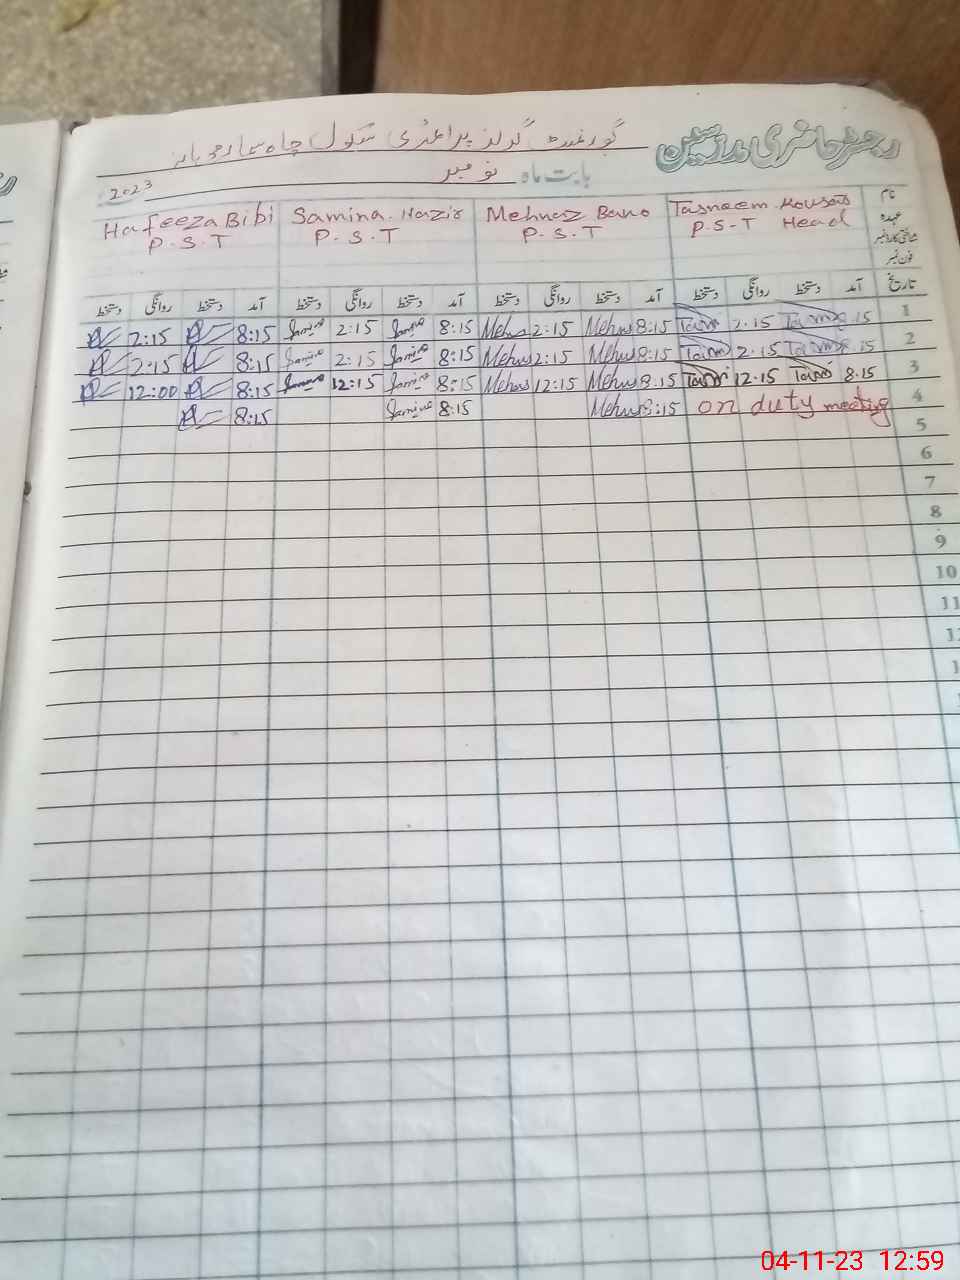 رجسٹر حاضری مدرسین
گورنمنٹ گرلز پرائمری سکول چاہ
بابت ماہ نومبر 2023
نام Tasneem Kousar Mehnaz Bano Samina Nazir Hafeeza Bibi
عہدہ P.S.T Head P.S.T P.S.T P.S.T
شناختی کارڈ نمبر
فون نمبر
تاریخ آمد دستخط روانگی دستخط آمد دستخط روانگی دستخط آمد دستخط روانگی دستخط آمد دستخط روانگی دستخط
1 8:15 2:15 8:15 Mehnaz 2:15 Mehnaz 8:15 Samina 2:15 Samina 8:15 2:15
2 8:15 2:15 8:15 Mehnaz 2:15 Mehnaz 8:15 Samina 2:15 Samina 8:15 2:15
3 8:15 12:15 8:15 Mehnaz 12:15 Mehnaz 8:15 Samina 12:15 Samina 8:15 12:00
4 on duty meeting 8:15 Mehnaz 8:15 Samina 8:15
5
6
7
8
9
10
11
04-11-23 12:59